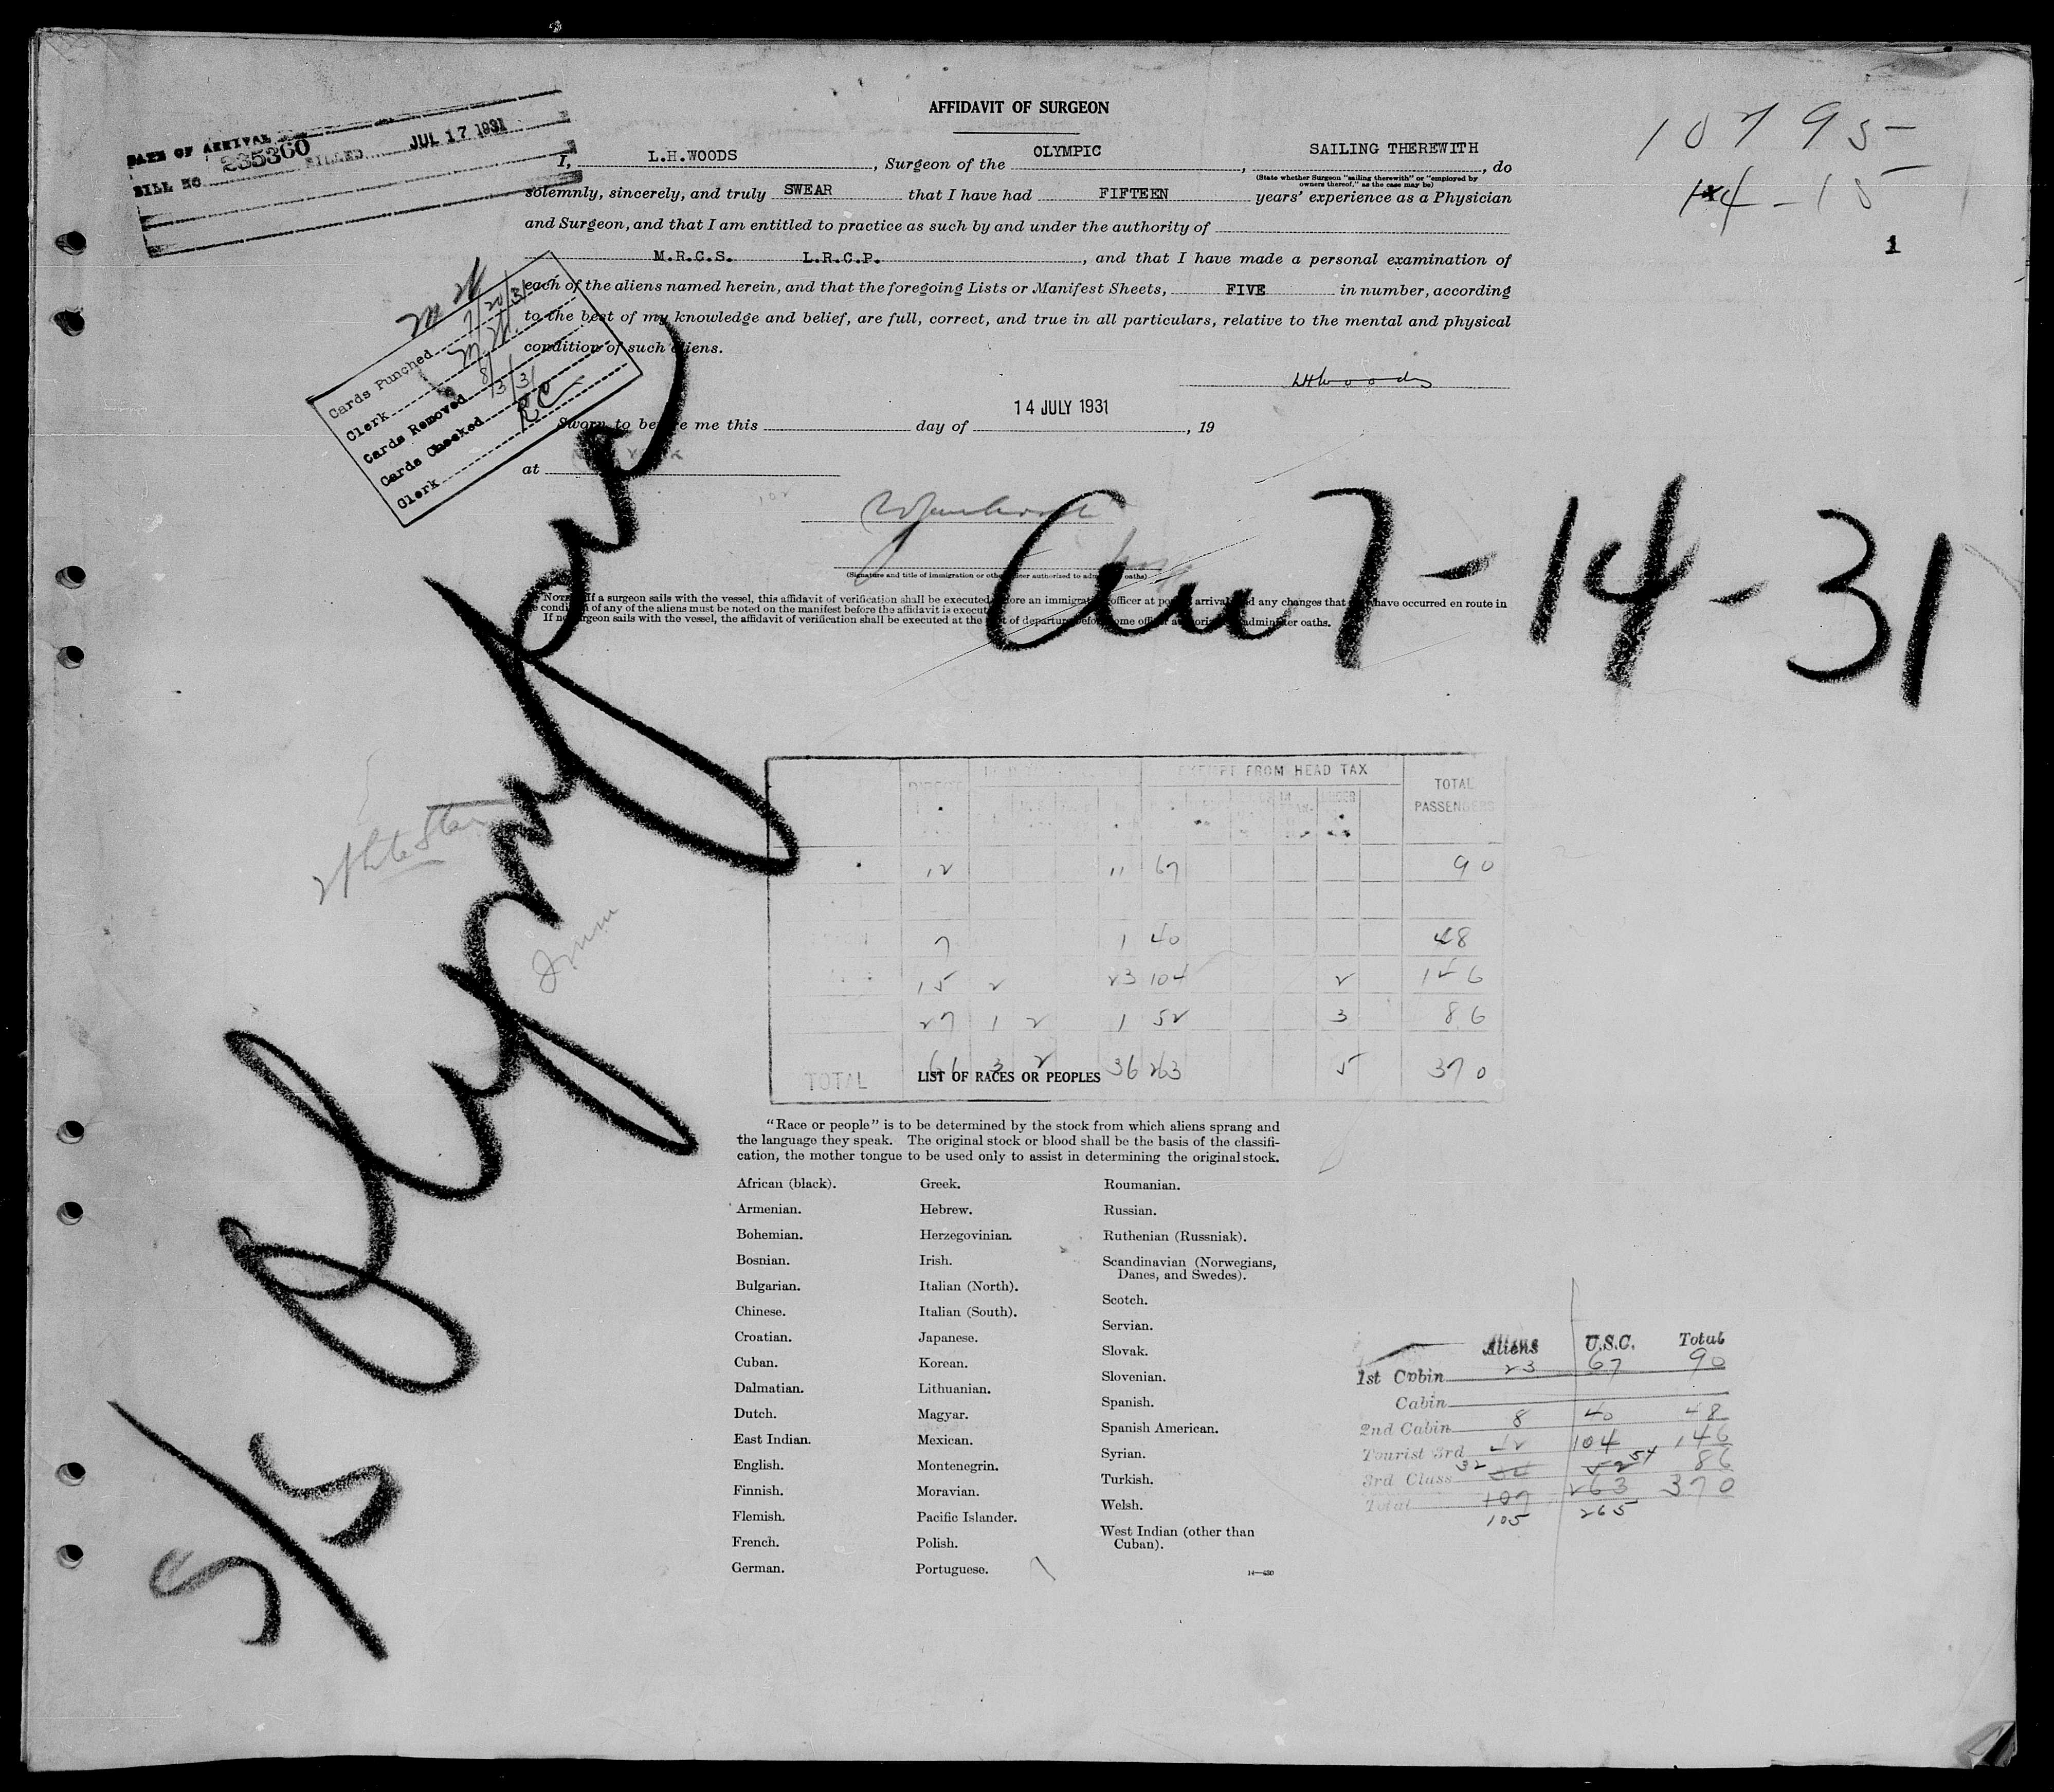 AFFIDAVIT OF SURGEON
DATE OF ARRIVAL
BILL NO. 235300 BILLED JUL 17 1931
10795
14-15
1
I, L.H.WOODS, Surgeon of the OLYMPIC, SAILING THEREWITH, do
(State whether Surgeon "sailing therewith" or "employed by
owners thereof," as the case may be)
solemnly, sincerely, and truly SWEAR that I have had FIFTEEN years' experience as a Physician
and Surgeon, and that I am entitled to practice as such by and under the authority of
M.R.C.S. L.R.C.P., and that I have made a personal examination of
each of the aliens named herein, and that the foregoing Lists or Manifest Sheets, FIVE in number, according
to the best of my knowledge and belief, are full, correct, and true in all particulars, relative to the mental and physical
condition of such aliens.
LHWoods
14 JULY 1931
Sworn to before me this day of , 19
at NEW YORK
Cards Punched 7/20/31
Clerk
Cards Removed 8/3/31
Cards Checked RC
Clerk
(Signature and title of immigration or other officer authorized to administer oaths)
NOTE.—If a surgeon sails with the vessel, this affidavit of verification shall be executed before an immigration officer at port of arrival and any changes that may have occurred en route in
the condition of any of the aliens must be noted on the manifest before the affidavit is executed.
If no surgeon sails with the vessel, the affidavit of verification shall be executed at the port of departure before some officer authorized to administer oaths.
S/S Olympic
Arr 7-14-31
White Star
DIRECT EXEMPT FROM HEAD TAX TOTAL
PASSENGERS
12 11 67 90
7 1 40 48
15 2 23 104 2 146
27 1 2 1 52 3 86
TOTAL 61 3 2 36 263 5 370
LIST OF RACES OR PEOPLES
"Race or people" is to be determined by the stock from which aliens sprang and
the language they speak. The original stock or blood shall be the basis of the classifi-
cation, the mother tongue to be used only to assist in determining the original stock.
African (black).
Armenian.
Bohemian.
Bosnian.
Bulgarian.
Chinese.
Croatian.
Cuban.
Dalmatian.
Dutch.
East Indian.
English.
Finnish.
Flemish.
French.
German.
Greek.
Hebrew.
Herzegovinian.
Irish.
Italian (North).
Italian (South).
Japanese.
Korean.
Lithuanian.
Magyar.
Mexican.
Montenegrin.
Moravian.
Pacific Islander.
Polish.
Portuguese.
Roumanian.
Russian.
Ruthenian (Russniak).
Scandinavian (Norwegians,
Danes, and Swedes).
Scotch.
Servian.
Slovak.
Slovenian.
Spanish.
Spanish American.
Syrian.
Turkish.
Welsh.
West Indian (other than
Cuban).
14—430
Aliens U.S.C. Total
1st Cabin 23 67 90
Cabin
2nd Cabin 8 40 48
Tourist 3rd 42 104 146
3rd Class 32 34 52 54 86
Total 107 263 370
105 265